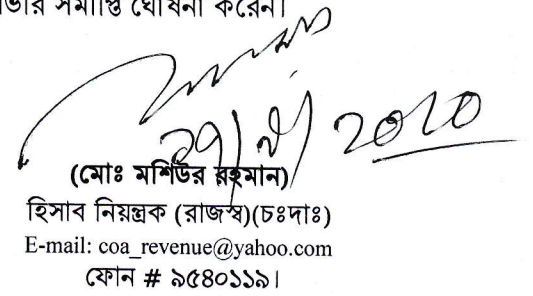 সমাপ্তি ঘোষনা করেন।
(মোঃ মশিউর রহমান)
হিসাব নিয়ন্ত্রক (রাজস্ব)(চঃদাঃ)
E-mail: coa_revenue@yahoo.com
ফোন # ৯৫৪০১১৯।